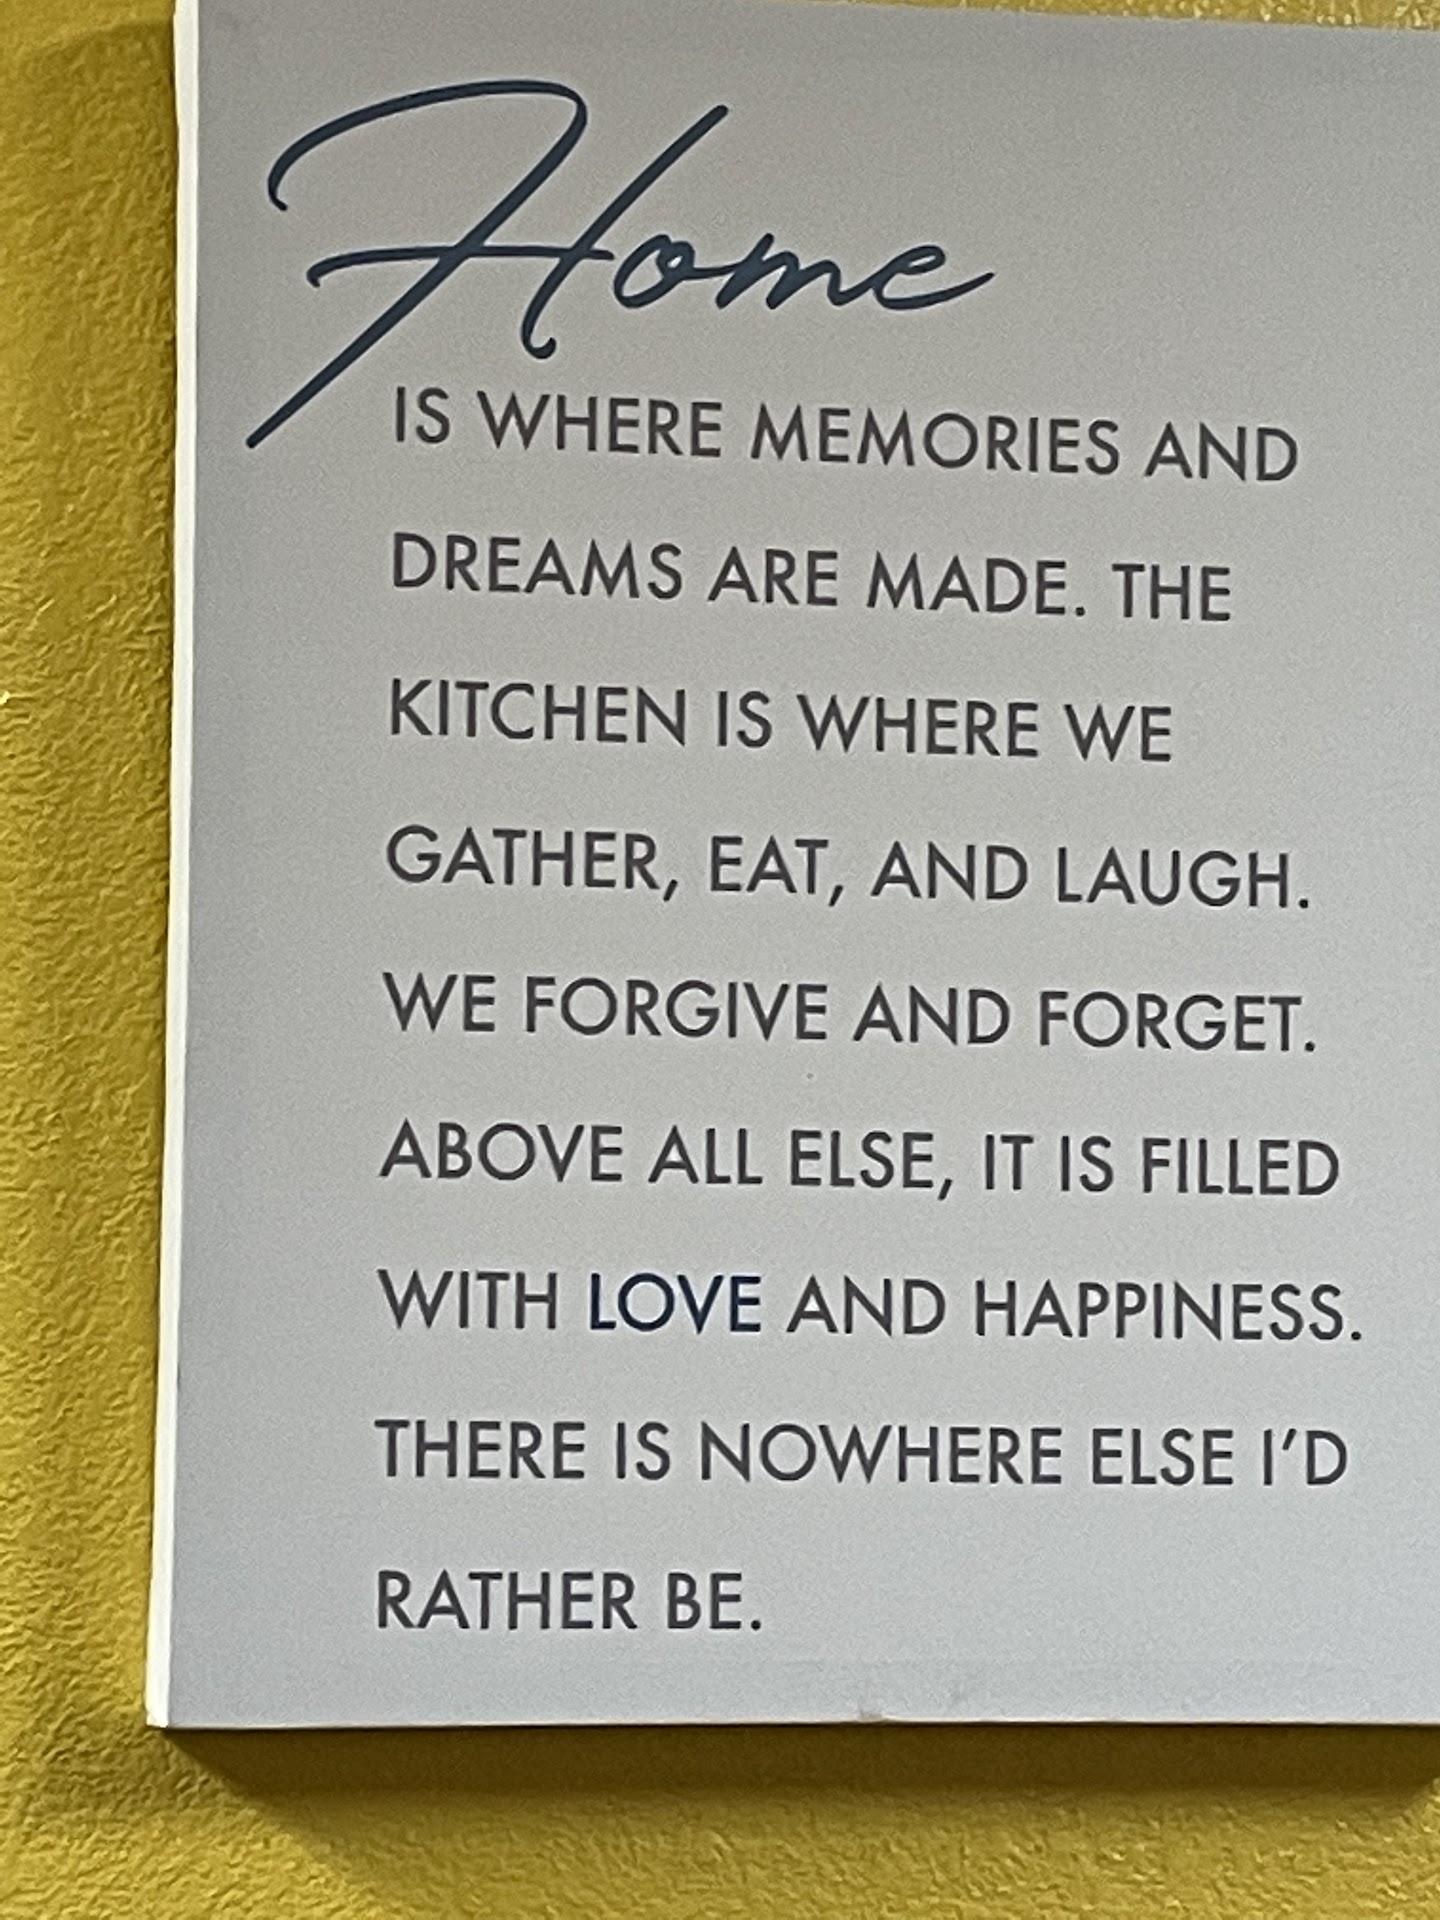 Home
IS WHERE MEMORIES AND
DREAMS ARE MADE. THE
KITCHEN IS WHERE WE
GATHER, EAT, AND LAUGH.
WE FORGIVE AND FORGET.
ABOVE ALL ELSE, IT IS FILLED
WITH LOVE AND HAPPINESS.
THERE IS NOWHERE ELSE I'D
RATHER BE.